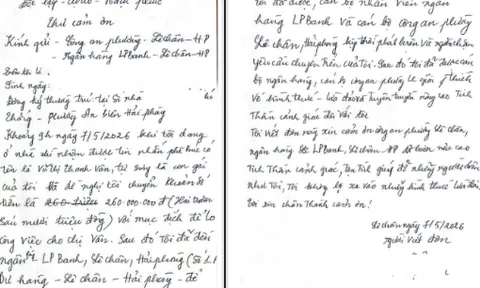 Độc lập - Tự do - Hạnh phúc
Thư cảm ơn
Kính gửi - Công an phường - Lê chân - HP
- Ngân hàng LPBank - Lê chân - HP
Tên tôi là:
Sinh ngày:
Đăng ký thường trú: tại Số nhà
Thắng - phường An biên Hải phòng
Khoảng 9h ngày 7/5/2026 khi tôi đang
ở nhà thì nhận được tin nhắn
tên là Vũ Thị Thanh Vân, tự xưng là con gái
của tôi đề nghị tôi chuyển khoản số
tiền là 260 triệu 260.000.000đ (Hai trăm
Sáu mươi triệu đồng) với mục đích để lo
công việc cho chị Vân. Sau đó tôi đã đến
ngân LPBank, Lê chân, Hải phòng (số
Dư hàng - Lê chân - Hải phòng - để
tôi đã được, cán bộ nhân viên ngân
hàng LPBank và cán bộ công an phường
Lê chân, Hải phòng kịp thời phát hiện và ngăn chặn
yêu cầu chuyển tiền của tôi. Sau đó tôi đã được cán
bộ ngân hàng, cán bộ công an phường giải thích
về hình thức lừa đảo và tuyên truyền nâng cao tinh
thần cảnh giác đối với tôi
Tôi viết đơn này xin cảm ơn công an phường Lê chân,
ngân hàng LPBank, Lê chân - HP
tinh thần cảnh giác, giúp đỡ những người dân
như tôi, tôi không xa vào những hình thức lừa đảo.
tôi xin chân thành cảm ơn!
Lê chân ngày 7/5/2026
người viết đơn